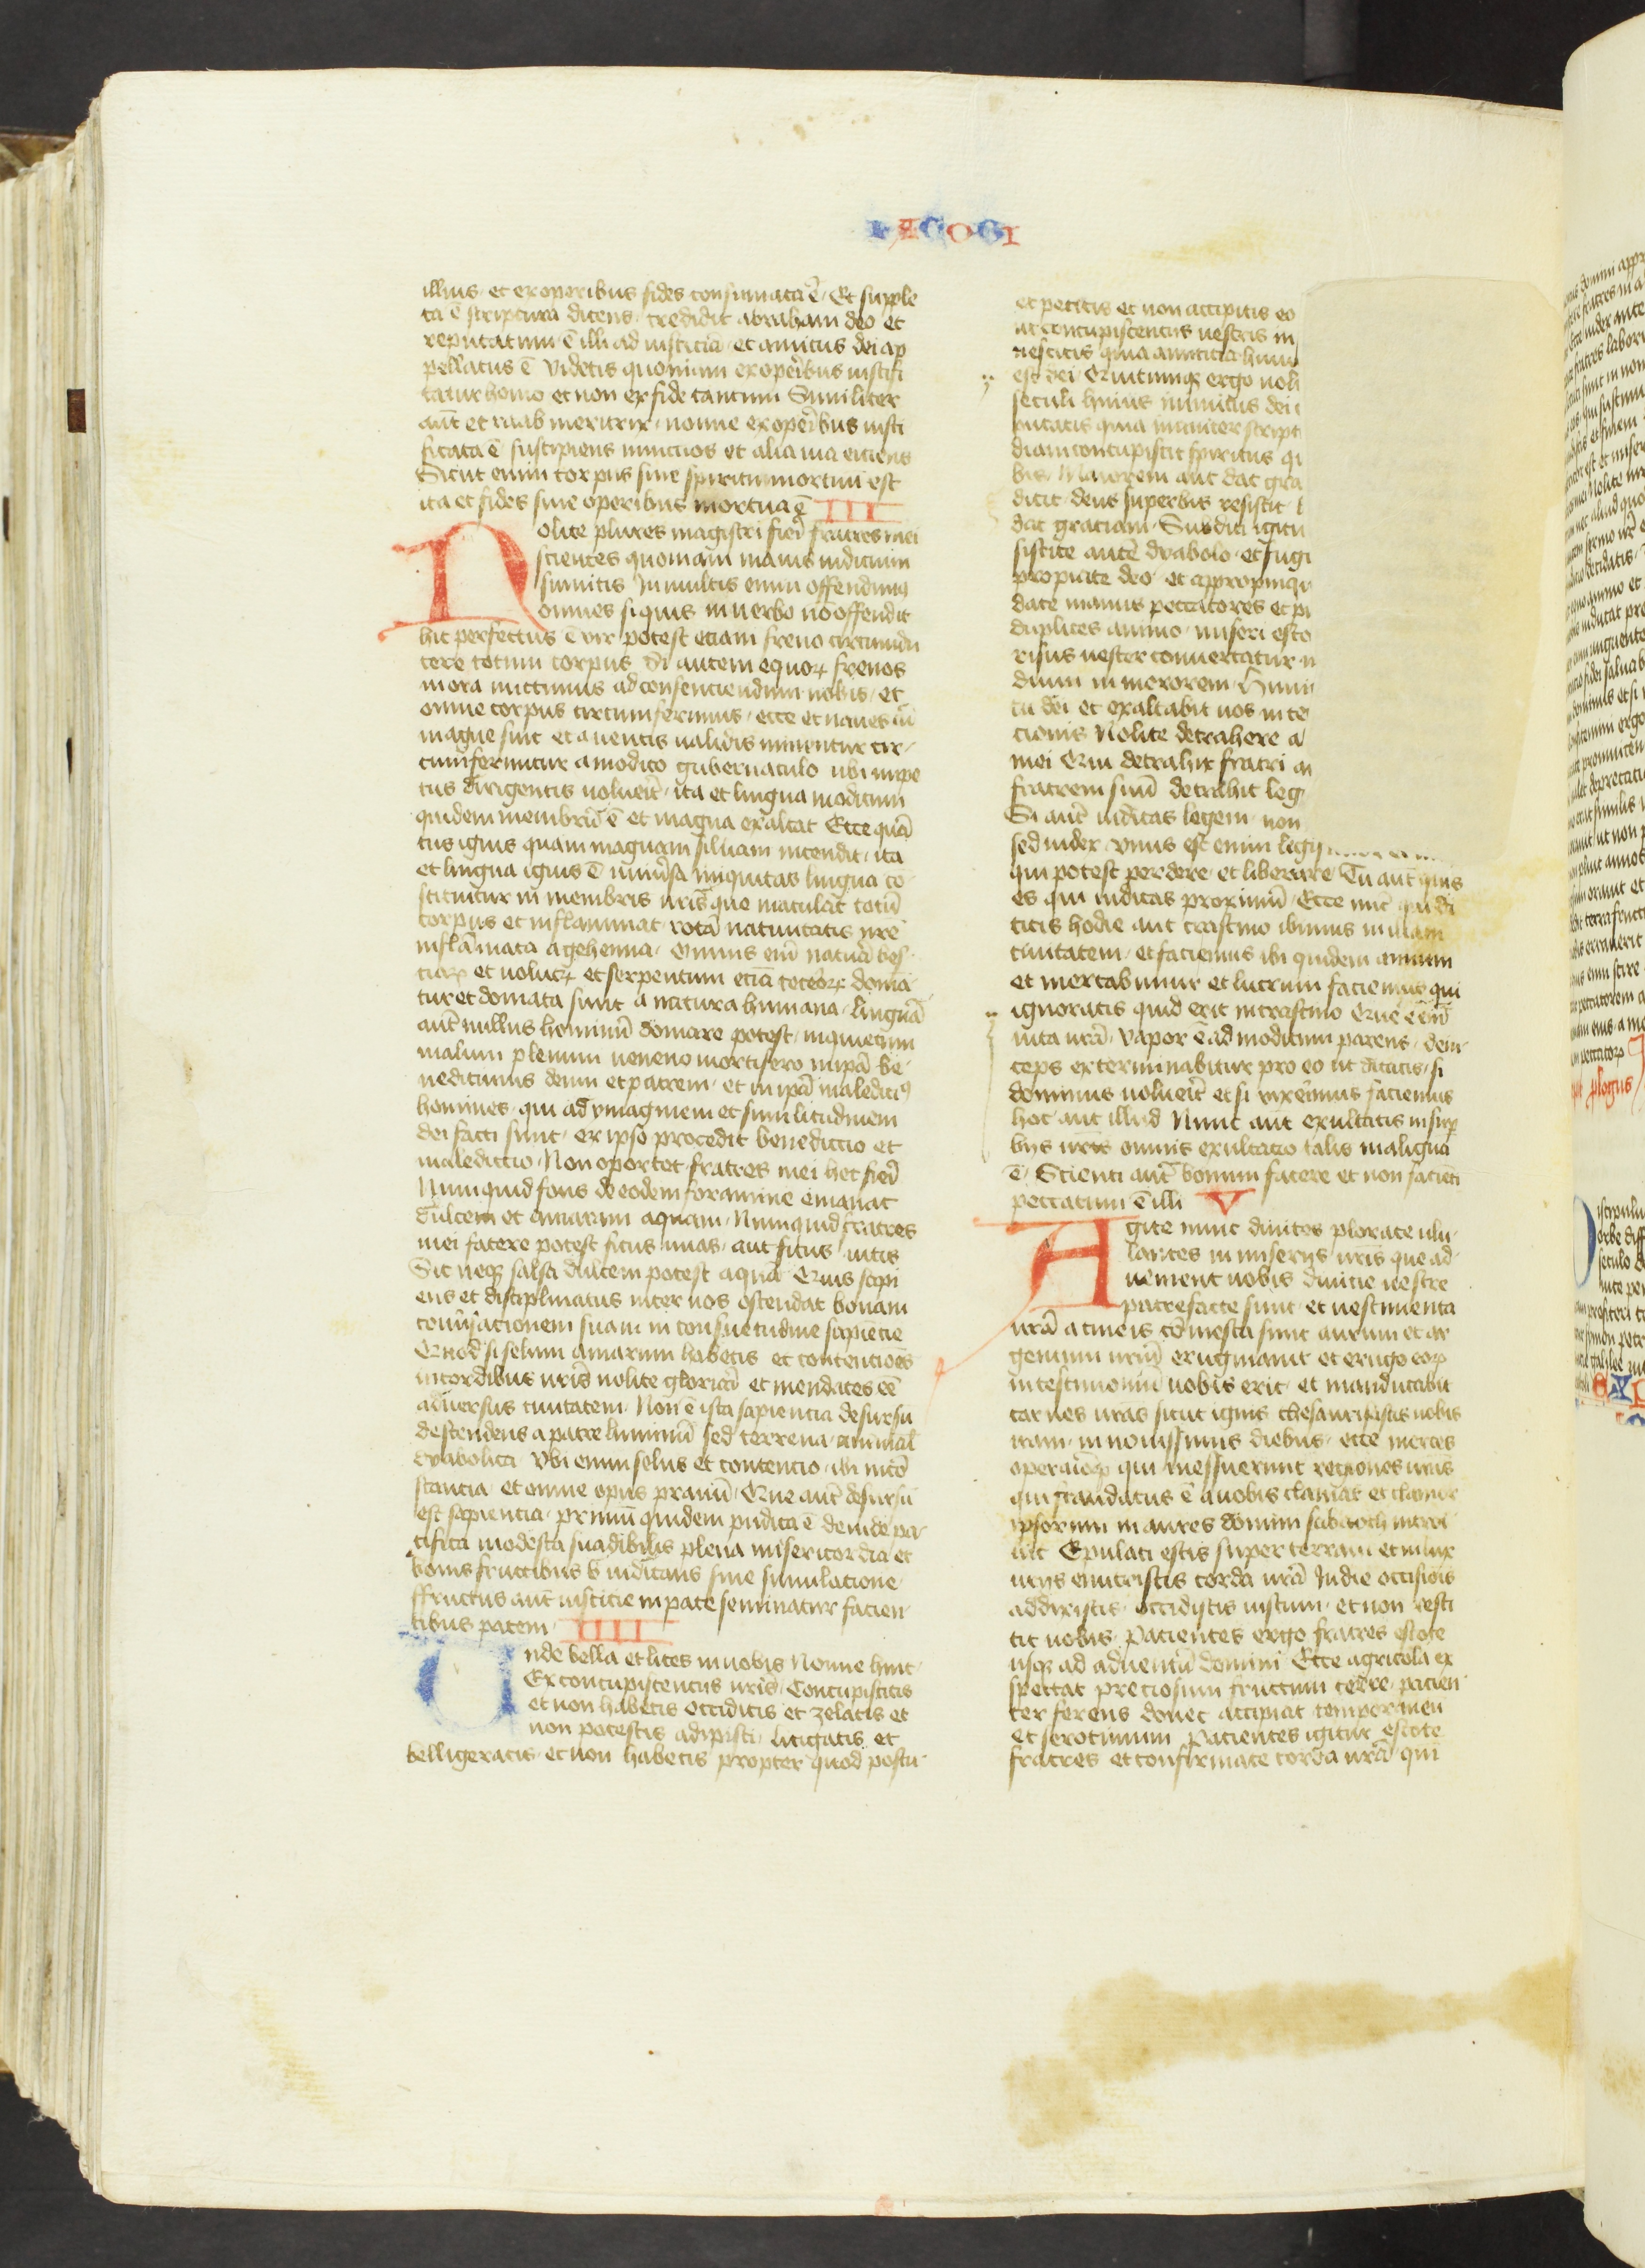 IACOBI
illius et ex operibus fides consumata ē Et supple
ta ē scriptura dicens credidit abraham deo et
reputatum ē illi ad iusticiā et amicus dei ap
pellatus ē Videtis quoniam ex operibus iustifi
catur homo et non ex fide tantum Similiter
aūt et raab meretrix nonne ex operibus iusti
ficata ē suscipiens nuncios et alia via eiciens
Sicut enim corpus sine spiritu mortuū est
ita et fides sine operibus mortua ē III
Nolite plures magistri fieri fratres mei
scientes quoniam maius iudicium
sumitis In multis enim offendimꝰ
omnes si quis in verbo nō offendit
hic perfectus ē vir potest etiam freno circundu
cere totum corpus Si autem equoꝝ frenos
in ora mittimus ad consenciendum nobis et
omne corpus circumferimus ecce et naues cū
magne sint et a ventis ualidis minentur cir
cumferuntur a modico gubernaculo ubi impe
tus dirigentis uoluerit ita et lingua modicum
quidem membrū ē et magna exaltat Ecce quā
tus ignis quam magnam siluam incendit ita
et lingua ignis ē uniuersa iniquitas lingua co
stituitur in membris nr̄is que maculat totū
corpus et inflammat rotā natiuitatis nr̄e
inflāmata a gehenna Omnis eni natura bes
tiaꝝ et uolucꝝ et serpentum etiā ceteroꝝ doma
tur et domata sunt a natura humana linguā
aūt nullus hominū domare potest inquietum
malum plenum ueneno mortifero in ipā be
nedicimus deum et patrem et in ipā maledicimꝰ
homines qui ad ymaginem et similitudinem
dei facti sunt ex ipso procedit benediccio et
malediccio Non oportet fratres mei hec fieri
Numquid fons de eodem foramine emanat
dulcem et amaram aquam Numquid fratres
mei facere potest ficus uuas aut ficus uitis
Sic neqꝫ salsa dulcem potest aquā Quis sapi
ens et disciplinatus inter uos ostendat bonam
conuersacionem suam in consuetudine sapiencie
Quod si selum amarum habetis et contenciones
in cordibus ur̄is nolite gloriari et mendaces eē
aduersus ciuitatem Non ē ista sapiencia desursū
descendens a patre luminū sed terrena animal
dyabolica Vbi enim selus et contencio ibi inco
stancia et omne opus prauū Que aūt desursū
est sapiencia primū quidem pudica ē deinde pa
cifica modesta suadibilis plena misericordia et
bonis fructibus iudicans sine simulacione
ffructus aūt iusticie in pace seminatur facien
tibus pacem IIII
Unde bella et lites in uobis Nonne hinc
Ex concupiscenciis ur̄is Concupiscitis
et non habetis occiditis et zelatis et
non potestis adipisci litigatis et
belligeratis et non habetis propter quod postu
et petitis et non accipitis eo
ut concupiscenciis uestris in
nescitis quia amicicia huiu
est dei Quicumqꝫ ergo uolu
seculi huius inimicus dei
putatis quia inaniter script
diam concupiscit spiritus qi
bis Maiorem aut dat gra
dicit deus superbis resistit
dat graciam Subditi igitu
sistite autē dyabolo et fugi
propiate deo et appropinqu
date manus peccatores et pu
duplices animo miseri esto
risus uester conuertatur in
dium in merorem Humi
tu dei et exaltabit uos in te
cionis Nolite detrahere a
mei Qui detrahit fratri
fratrem suū detrahit leg
Si aūt iudicas legem non
sed iudex Vnus est enim legis
qui potest perdere et liberare Tu aūt quis
es qui iudicas proximū Ecce nūc qui di
citis hodie aut crastino ibimus in illam
ciuitatem et faciemus ibi quidem annum
et mercabimur et lucrum faciemus qui
ignoratis quid erit in crastino Que ē enī
uita ur̄a Vapor ē ad modicum parens dein
ceps exterminabitur pro eo ut dicatis si
dominus uoluerit et si vixerimus faciemus
hoc aut illud Nunc aūt exultatis in sup
biis ur̄is omnis exultacio talis maligna
ē Scienti aūt bonum facere et non facienti
peccatum ē illi V
Agite nunc diuites plorate ulu
lantes in miseriis ur̄is que ad
uenient uobis diuicie uestre
putrefacte sunt et uestimenta
ur̄a a tineis cōmesta sunt aurum et ar
gentum ur̄m eruginauit et erugo eoꝝ
in testimoniū uobis erit et manducabit
carnes ur̄as sicut ignis thesaurisastis uobis
iram in nouissimis diebus ecce merces
operarioꝝ qui messuerunt regiones ur̄as
qui fraudatus ē a uobis clamat et clamor
ipsorum in aures domini sabaoth introi
uit Epulati estis super terram et in lux
uriis enutristis corda ur̄a In die occisiois
addixistis occidistis iustum et non resti
tit uobis Pacientes ergo fratres estote
usqꝫ ad aduentū domini Ecce agricola ex
spectat preciosum fructum terre pacien
ter ferens donec accipiat temporaneū
et serotinum Pacientes igitur estote
fratres et confirmate corda ur̄a qui